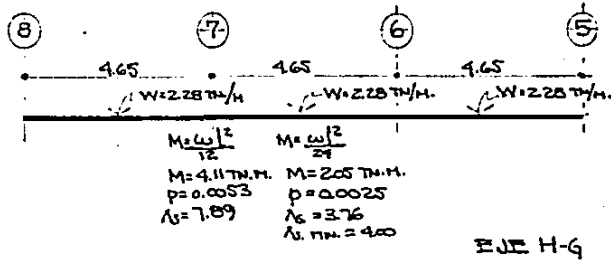 8 7 6 5
4.65 4.65 4.65
W=2.28 TN/M W=2.28 TN/M. W=2.28 TN/M
M=ωl²/12 M=ωl²/24
M=4.11 TN.M. M=2.05 TN.M.
p=0.0053 p=0.0025
As=7.89 As=3.76
As. MIN.=4.00
EJE H-G